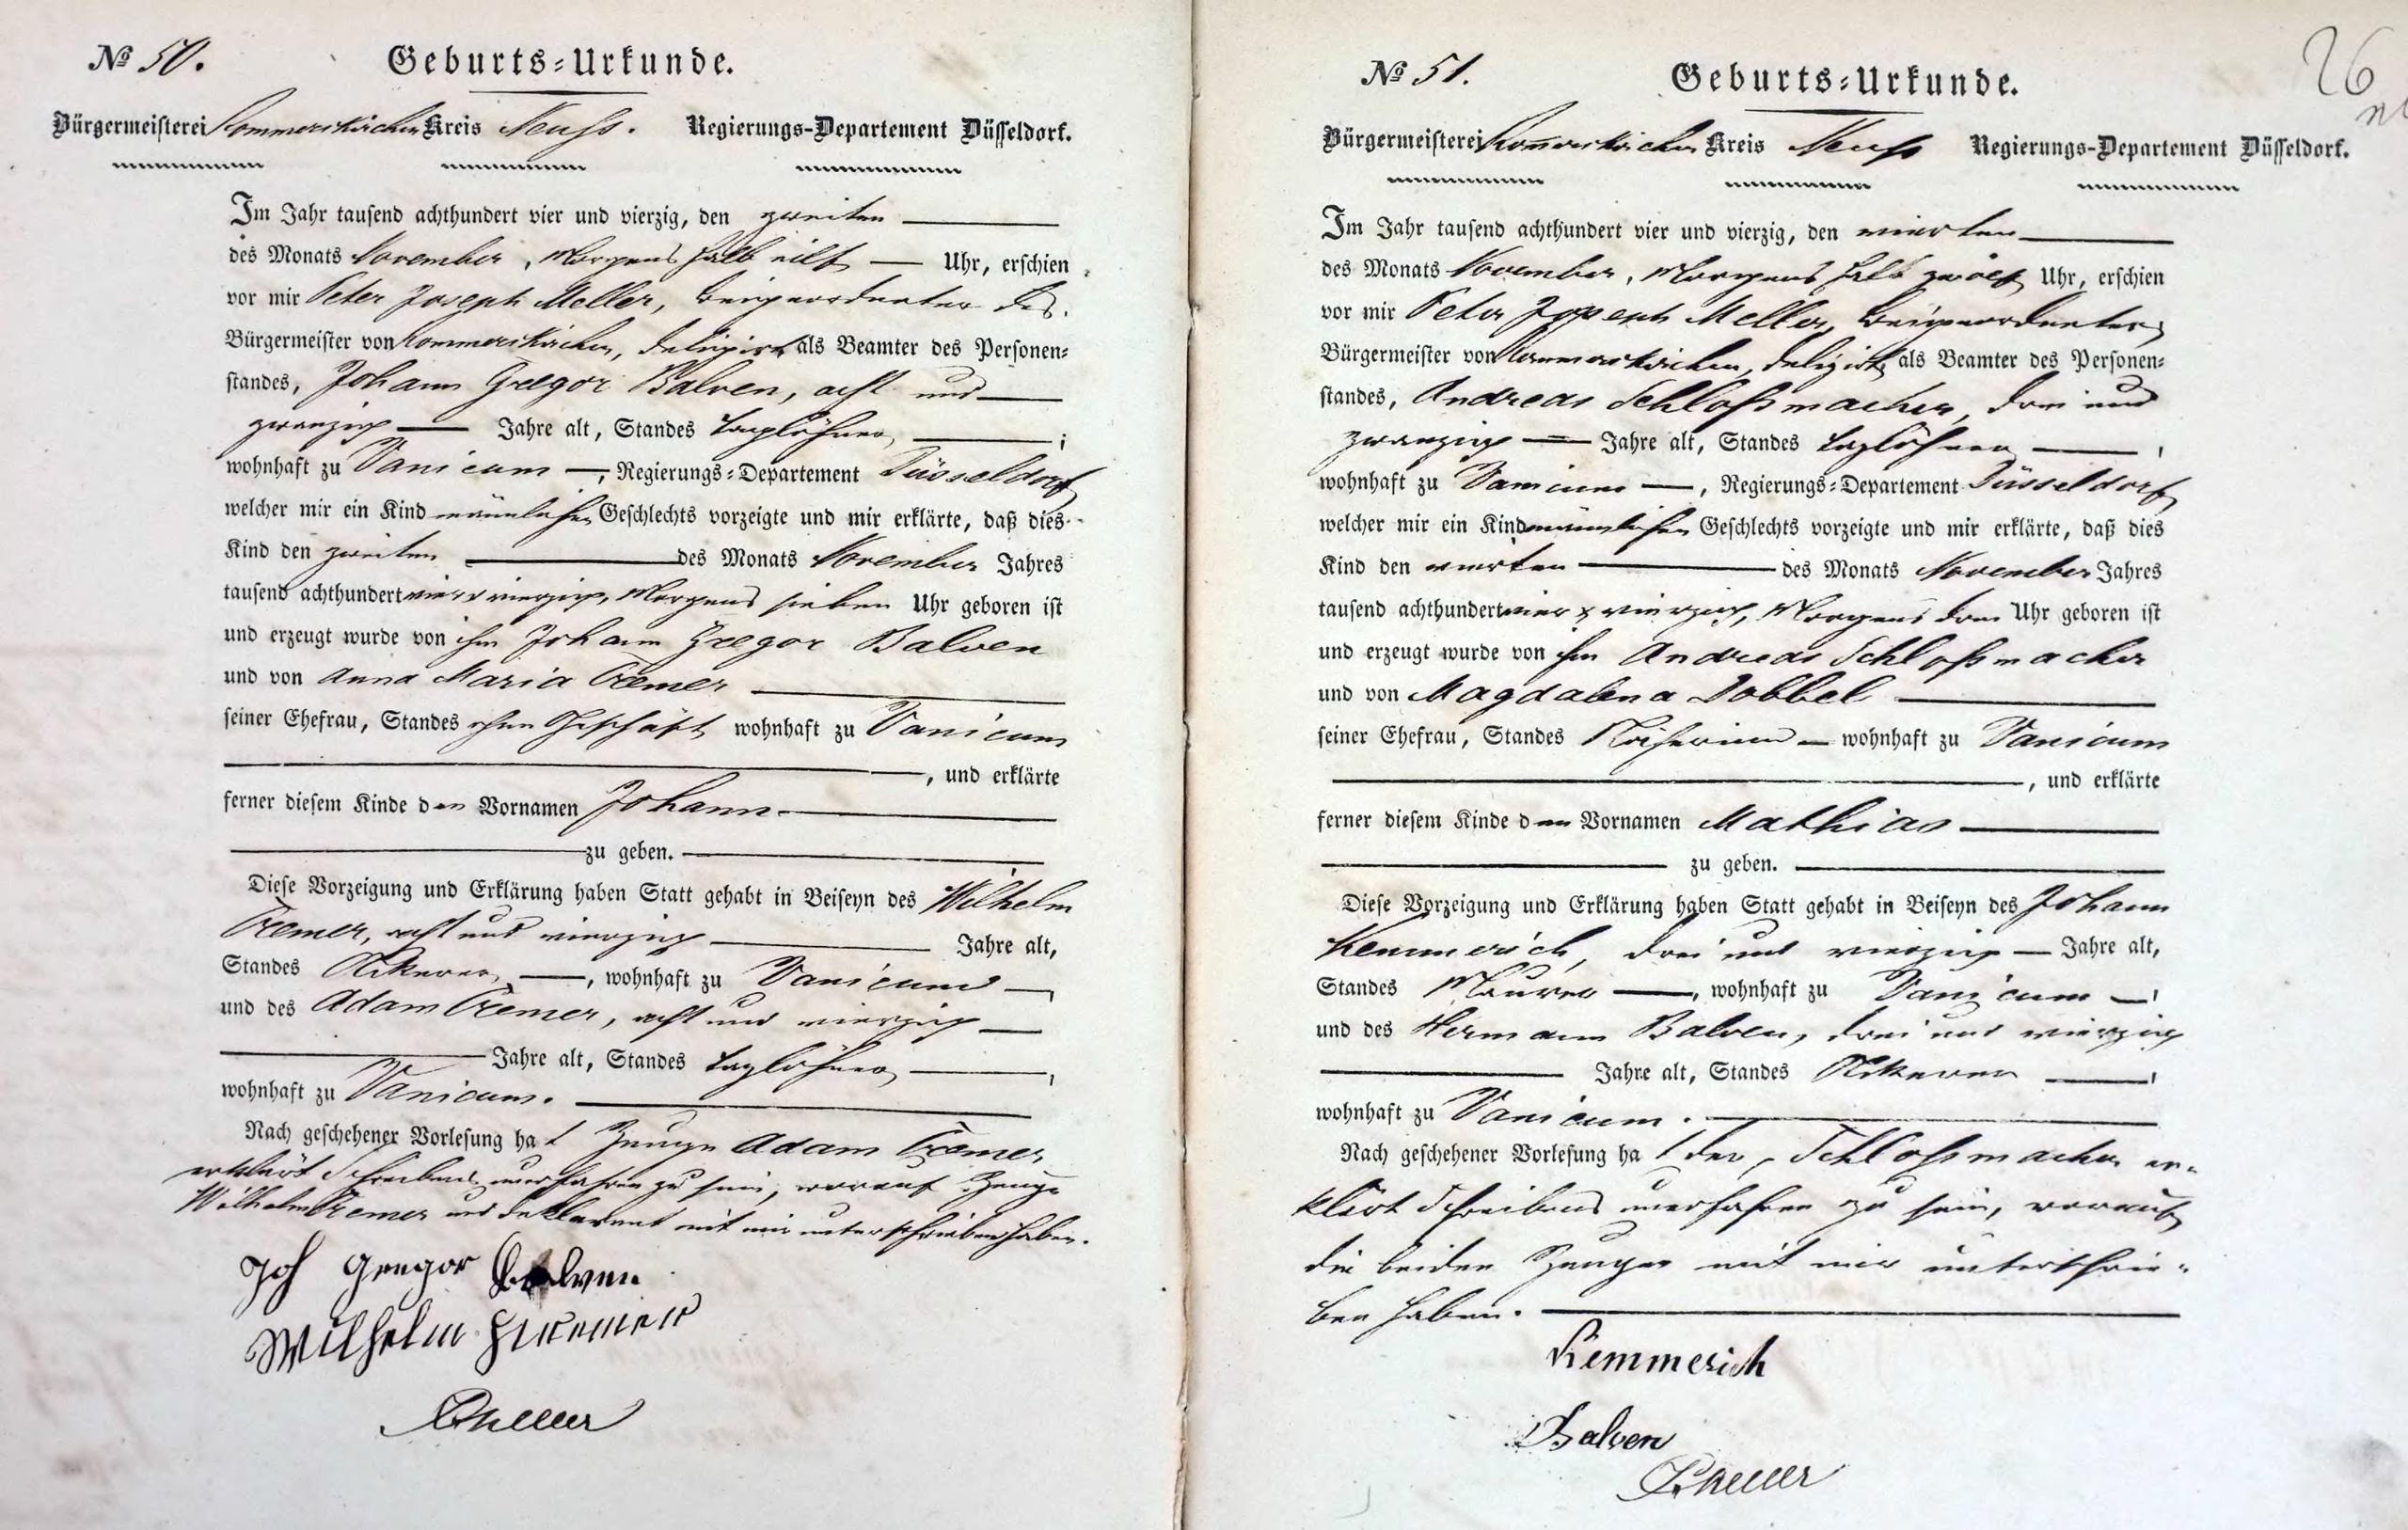 № 50.
Geburts-Urkunde.
Bürgermeisterei Rommerskirchen Kreis Neuss. Regierungs-Departement Düsseldorf.
Im Jahr tausend achthundert vier und vierzig, den zweiten
des Monats November, Morgens halb eilf Uhr, erschien
vor mir Peter Joseph Meller, Beigeordneter des
Bürgermeister von Rommerskirchen, deligirt als Beamter des Personen-
standes, Johann Gregor Balven, acht und
zwanzig Jahre alt, Standes Taglöhner,
wohnhaft zu Vanicum, Regierungs-Departement Düsseldorf
welcher mir ein Kind männlichen Geschlechts vorzeigte und mir erklärte, daß dies
Kind den zweiten des Monats November Jahres
tausend achthundert vier & vierzig, Morgens sieben Uhr geboren ist
und erzeugt wurde von ihm Johann Gregor Balven
und von Anna Maria Cremer
seiner Ehefrau, Standes ohne Geschäft wohnhaft zu Vanicum
, und erklärte
ferner diesem Kinde den Vornamen Johann
zu geben.
Diese Vorzeigung und Erklärung haben Statt gehabt in Beiseyn des Wilhelm
Cremer, acht und vierzig Jahre alt,
Standes Ackerer, wohnhaft zu Vanicum
und des Adam Cremer, acht und vierzig
Jahre alt, Standes Taglöhner,
wohnhaft zu Vanicum.
Nach geschehener Vorlesung hat Zeuge Adam Cremer
erklärt Schreibens unerfahren zu sein, worauf Zeuge
Wilhelm Cremer und Deklarant mit mir unterschrieben haben.
Joh Gregor Balven
Wilhelm Kremer
PMeller
26
№ 51.
Geburts-Urkunde.
Bürgermeisterei Rommerskirchen Kreis Neuss Regierungs-Departement Düsseldorf.
Im Jahr tausend achthundert vier und vierzig, den vierten
des Monats November, Morgens halb zwölf Uhr, erschien
vor mir Peter Joseph Meller, Beigeordneter
Bürgermeister von Rommerskirchen, deligirt als Beamter des Personen-
standes, Andreas Schloßmacher, drei und
zwanzig Jahre alt, Standes Taglöhner,
wohnhaft zu Vanicum, Regierungs-Departement Düsseldorf
welcher mir ein Kind männlichen Geschlechts vorzeigte und mir erklärte, daß dies
Kind den vierten des Monats November Jahres
tausend achthundert vier & vierzig, Morgens drei Uhr geboren ist
und erzeugt wurde von ihm Andreas Schloßmacher
und von Magdalena Dobbel
seiner Ehefrau, Standes Näherinn wohnhaft zu Vanicum
, und erklärte
ferner diesem Kinde den Vornamen Mathias
zu geben.
Diese Vorzeigung und Erklärung haben Statt gehabt in Beiseyn des Johann
Kemmerich, drei und vierzig Jahre alt,
Standes Maurer, wohnhaft zu Vanicum,
und des Hermann Balven, drei und vierzig
Jahre alt, Standes Ackerer,
wohnhaft zu Vanicum.
Nach geschehener Vorlesung hat der, Schloßmacher er-
klärt Schreibens unerfahren zu sein, worauf
die beiden Zeugen mit mir unterschrie-
ben haben.
Kemmerich
Balven
PMeller